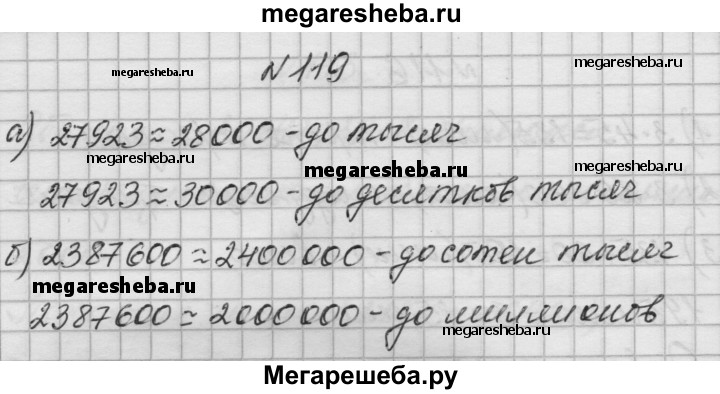 megaresheba.ru
megaresheba.ru № 119 megaresheba.ru
а) 27923 ≈ 28000 - до тысяч
megaresheba.ru megaresheba.ru megaresheba.ru
27923 ≈ 30000 - до десятков тысяч
б) 2387600 ≈ 2400000 - до сотен тысяч
megaresheba.ru
2387600 ≈ 2000000 - до миллионов
megaresheba.ru
Мегарешеба.ру